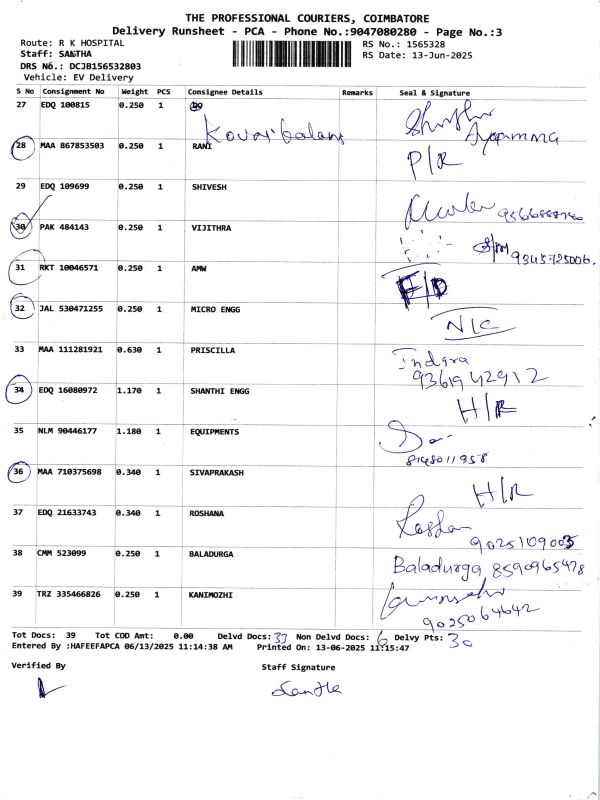 THE PROFESSIONAL COURIERS, COIMBATORE
Delivery Runsheet - PCA - Phone No.:9047080280 - Page No.:3
Route: R K HOSPITAL
Staff: SANTHA
DRS No.: DCJB156532803
Vehicle: EV Delivery
RS No.: 1565328
RS Date: 13-Jun-2025
S No Consignment No Weight PCS Consignee Details Remarks Seal & Signature
27 EDQ 100815 0.250 1
Ayamma
28 MAA 867853503 0.250 1 RANI P/R
29 EDQ 109699 0.250 1 SHIVESH
30 PAK 484143 0.250 1 VIJITHRA 9345725006.
31 RKT 10046571 0.250 1 AMW F/D
32 JAL 530471255 0.250 1 MICRO ENGG N/C
33 MAA 111281921 0.630 1 PRISCILLA Indira
9361942912
34 EDQ 16080972 1.170 1 SHANTHI ENGG H/R
35 NLM 90446177 1.180 1 EQUIPMENTS
8148011958
36 MAA 710375698 0.340 1 SIVAPRAKASH H/R
37 EDQ 21633743 0.340 1 ROSHANA
9025109003
38 CMM 523099 0.250 1 BALADURGA Baladurga 8590965478
39 TRZ 335466826 0.250 1 KANIMOZHI
9025064642
Tot Docs: 39 Tot COD Amt: 0.00 Delvd Docs: 33 Non Delvd Docs: 6 Delvy Pts: 30
Entered By :HAFEEFAPCA 06/13/2025 11:14:38 AM Printed On: 13-06-2025 11:15:47
Verified By Staff Signature
Santha